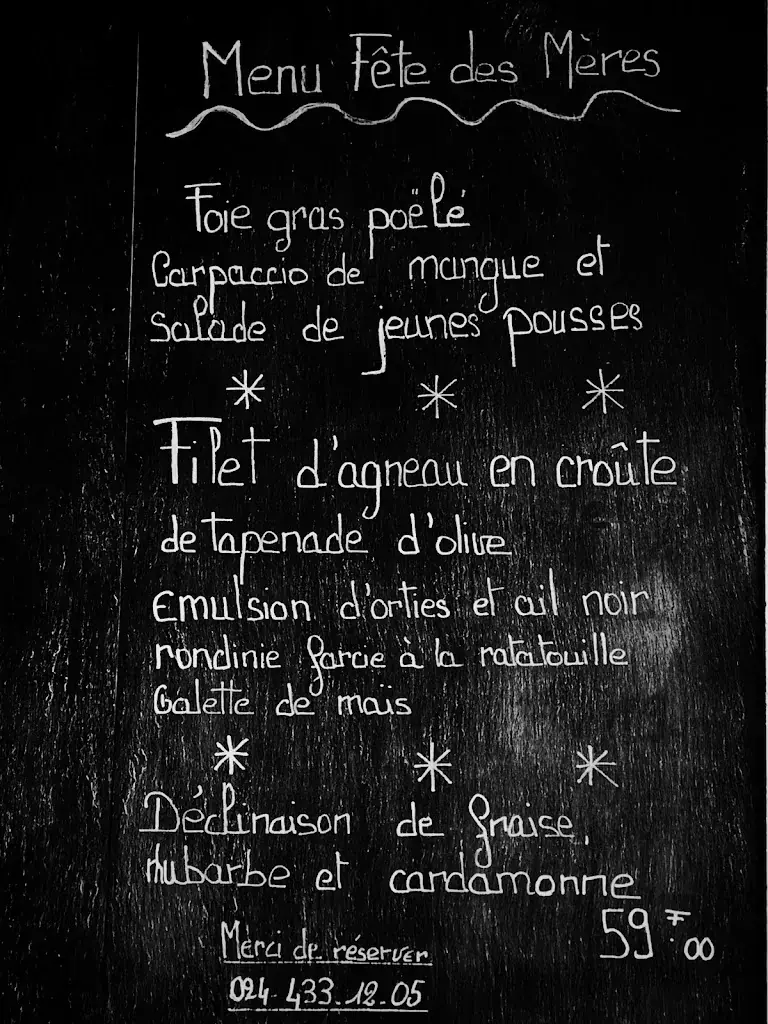 Menu Fête des Mères
Foie gras poëlé
Carpaccio de mangue et
Salade de jeunes pousses
* * *
Filet d'agneau en croûte
de tapenade d'olive
Emulsion d'orties et ail noir
rondinie farcie à la ratatouille
Galette de maïs
* * *
Déclinaison de fraise,
rhubarbe et cardamonne
59 F.00
Merci de réserver
024 433.12.05